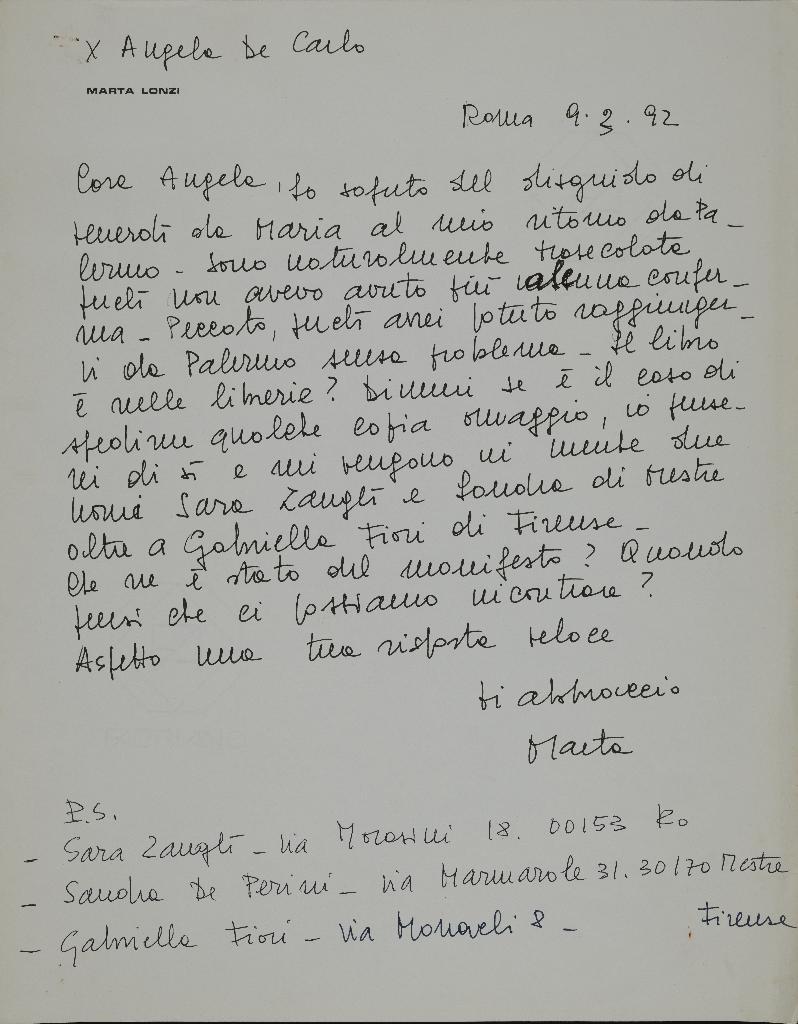 X Angela De Carlo
MARTA LONZI
Roma 9.3.92
Cara Angela, ho saputo del disguido di
venerdì da Maria al mio ritorno da Pa_
lermo - Sono naturalmente trasecolata
perché non avevo avuto più alcuna confer_
ma - Peccato, perché avrei potuto raggiunger_
ti da Palermo senza problema - Il libro
è nelle librerie? Dimmi se è il caso di
spedirne qualche copia omaggio, io pense_
rei di sì e mi vengono in mente due
nomi Sara Zanghì e Sandra di Mestre
oltre a Gabriella Fiori di Firenze -
Che ne è stato del manifesto? Quando
pensi che ci possiamo incontrare?
Aspetto una tua risposta veloce
ti abbraccio
Marta
P.S.
- Sara Zanghì - Via Morosini 18. 00153 Ro
- Sandra De Perini - Via Marmarole 31. 30170 Mestre
- Gabriella Fiori - Via 8 - Firenze